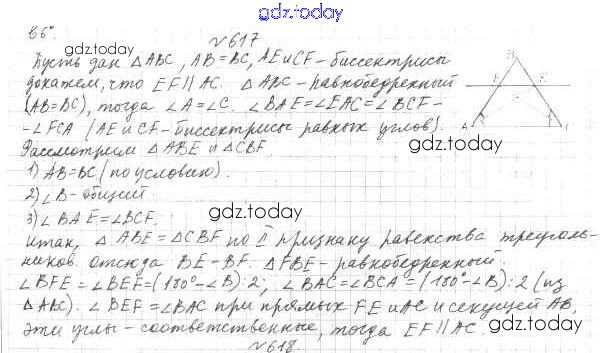 gdz.today
66°.
№617
Пусть дан △ABC, AB=BC, AE и CF - биссектрисы
докажем, что EF∥AC. △ABC - равнобедренный
(AB=BC), тогда ∠A=∠C. ∠BAE=∠EAC=∠BCF-
-∠FCA (AE и CF - биссектрисы равных углов).
B
F E
A C
gdz.today
gdz.today
Рассмотрим △ABE и △CBF.
1) AB=BC (по условию).
2) ∠B - общий.
gdz.today
3) ∠BAE=∠BCF.
Итак, △ABE=△CBF по II признаку равенства треуголь-
ников. отсюда BE-BF. △FBE- равнобедренный.
∠BFE=∠BEF=(180°-∠B):2; ∠BAC=∠BCA=(180°-∠B):2 (из
△ABC). ∠BEF=∠BAC при прямых FE и AC и секущей AB,
эти углы - соответственные, тогда EF∥AC.
gdz.today
gdz.today
№618.